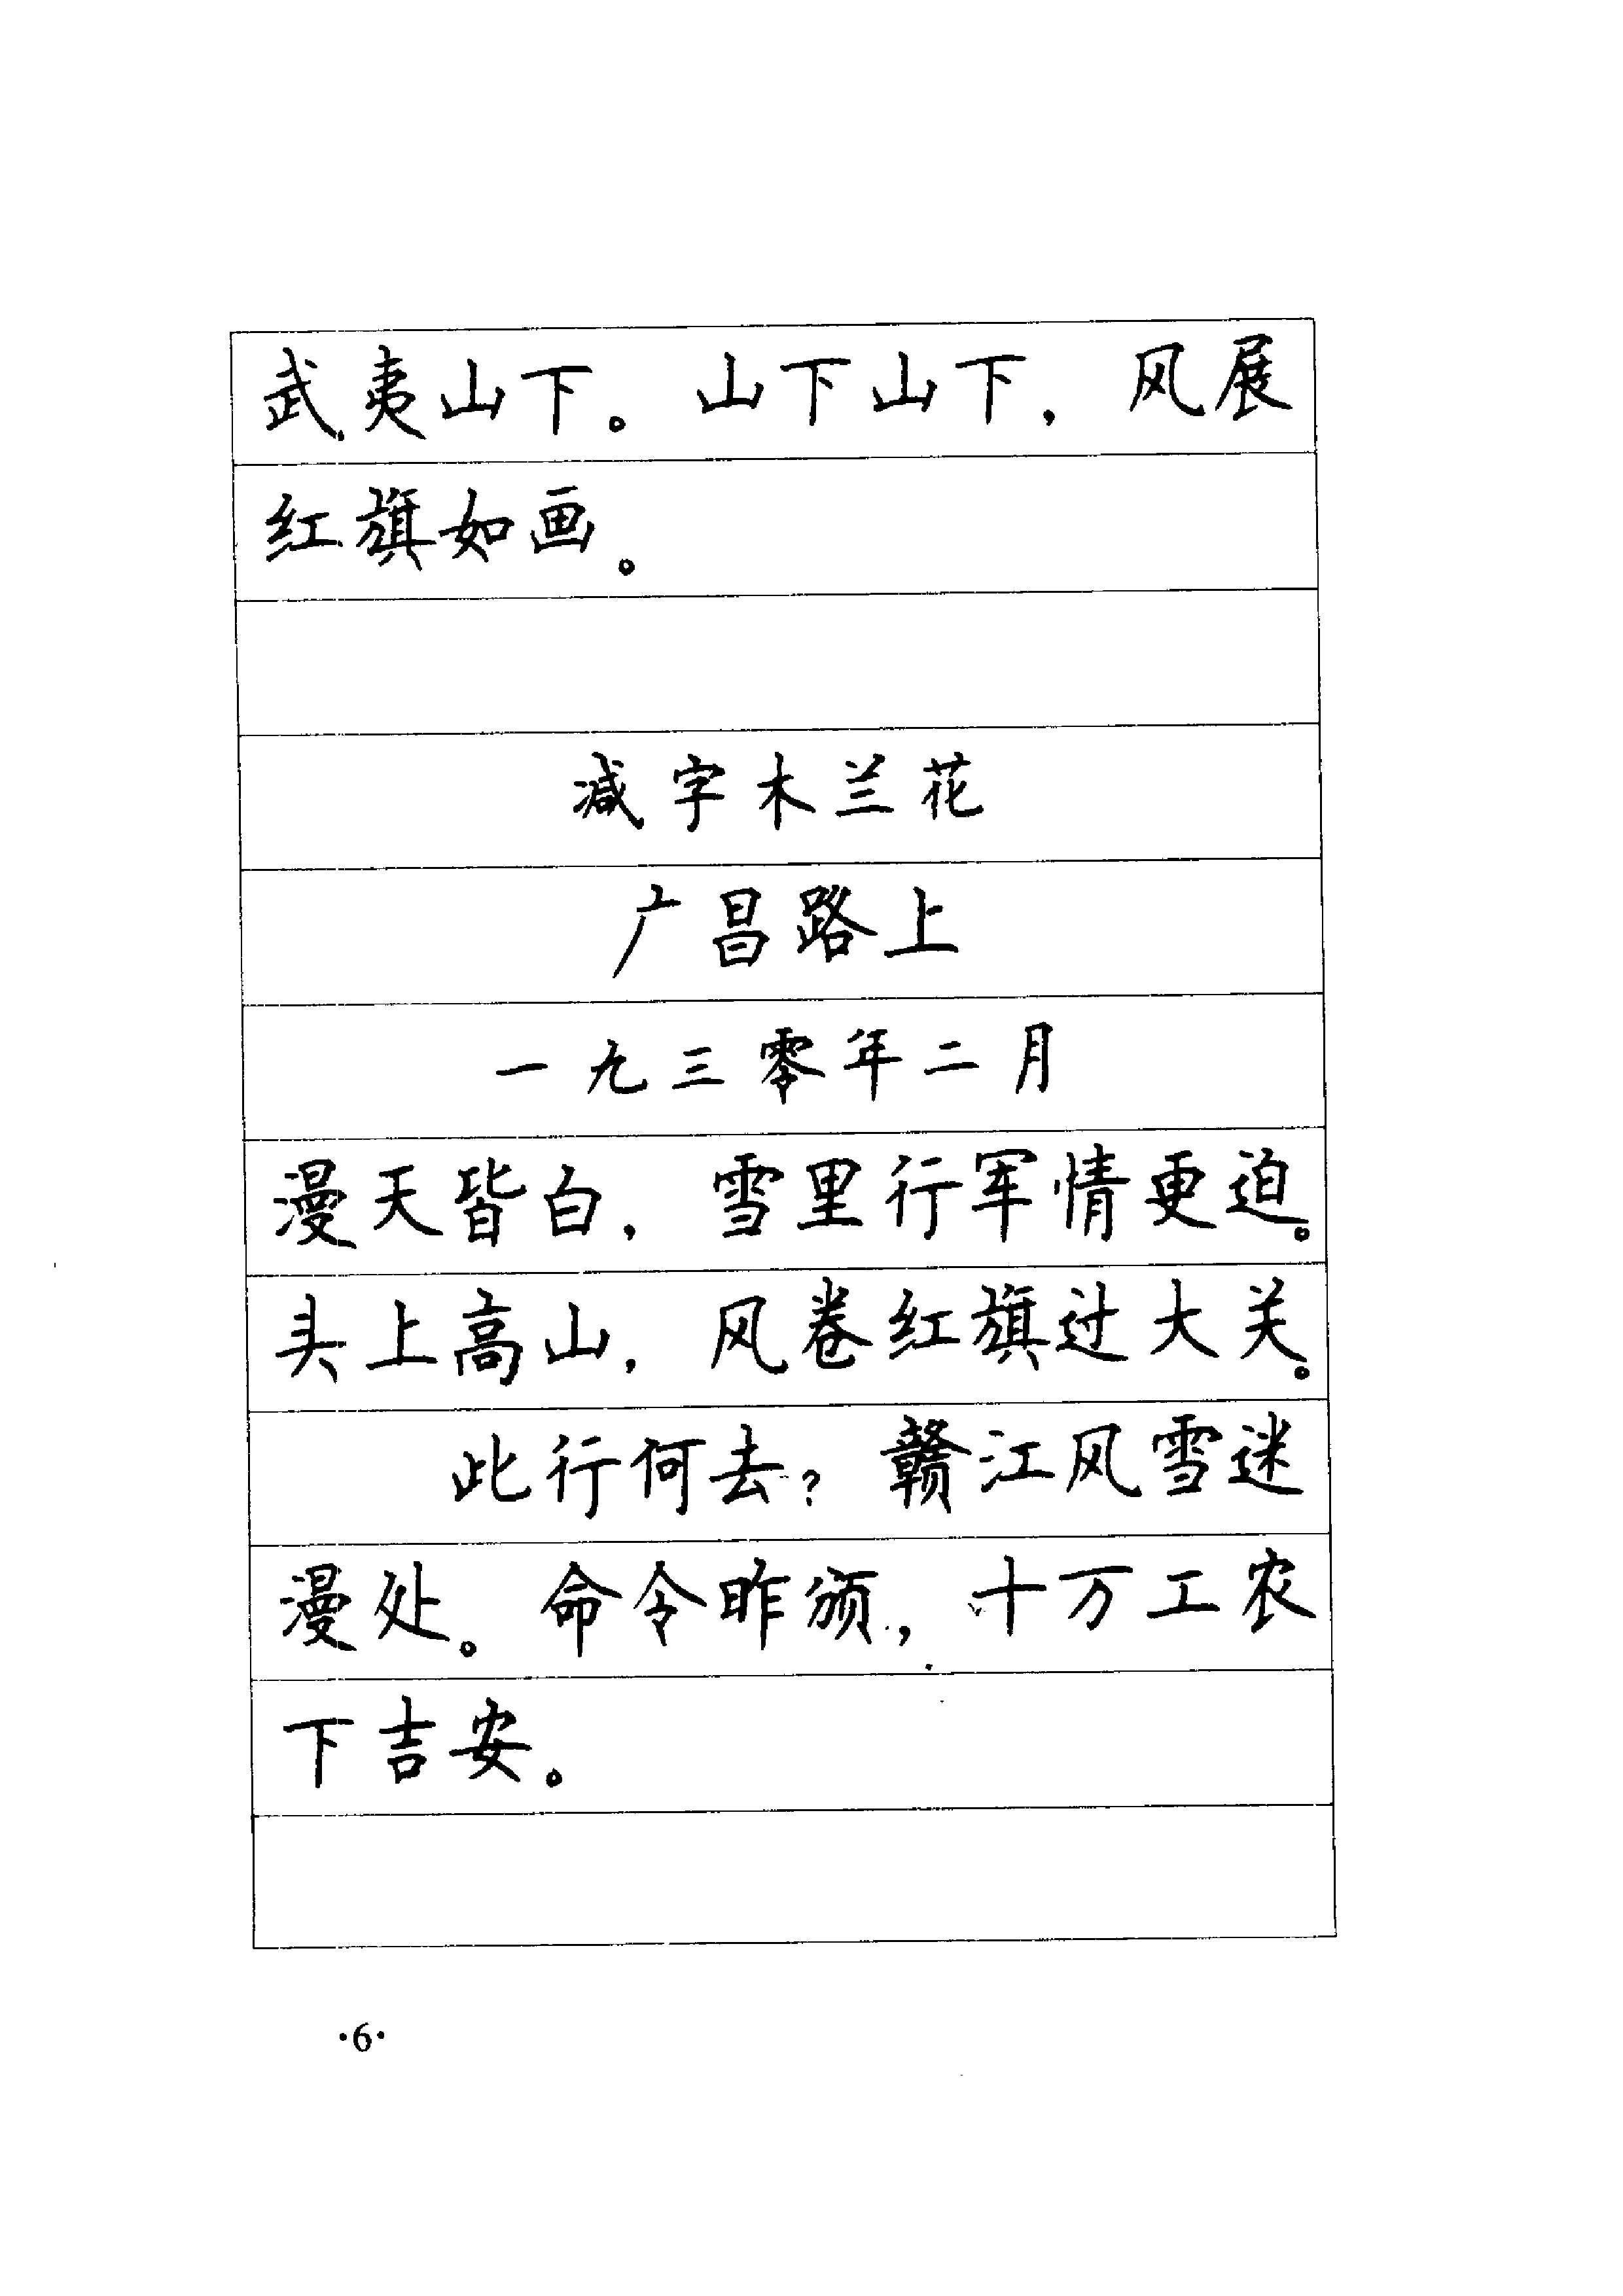 武夷山下。山下山下，风展
红旗如画。
减字木兰花
广昌路上
一九三零年二月
漫天皆白，雪里行军情更迫。
头上高山，风卷红旗过大关。
此行何去？赣江风雪迷
漫处。命令昨颁，十万工农
下吉安。
·6·